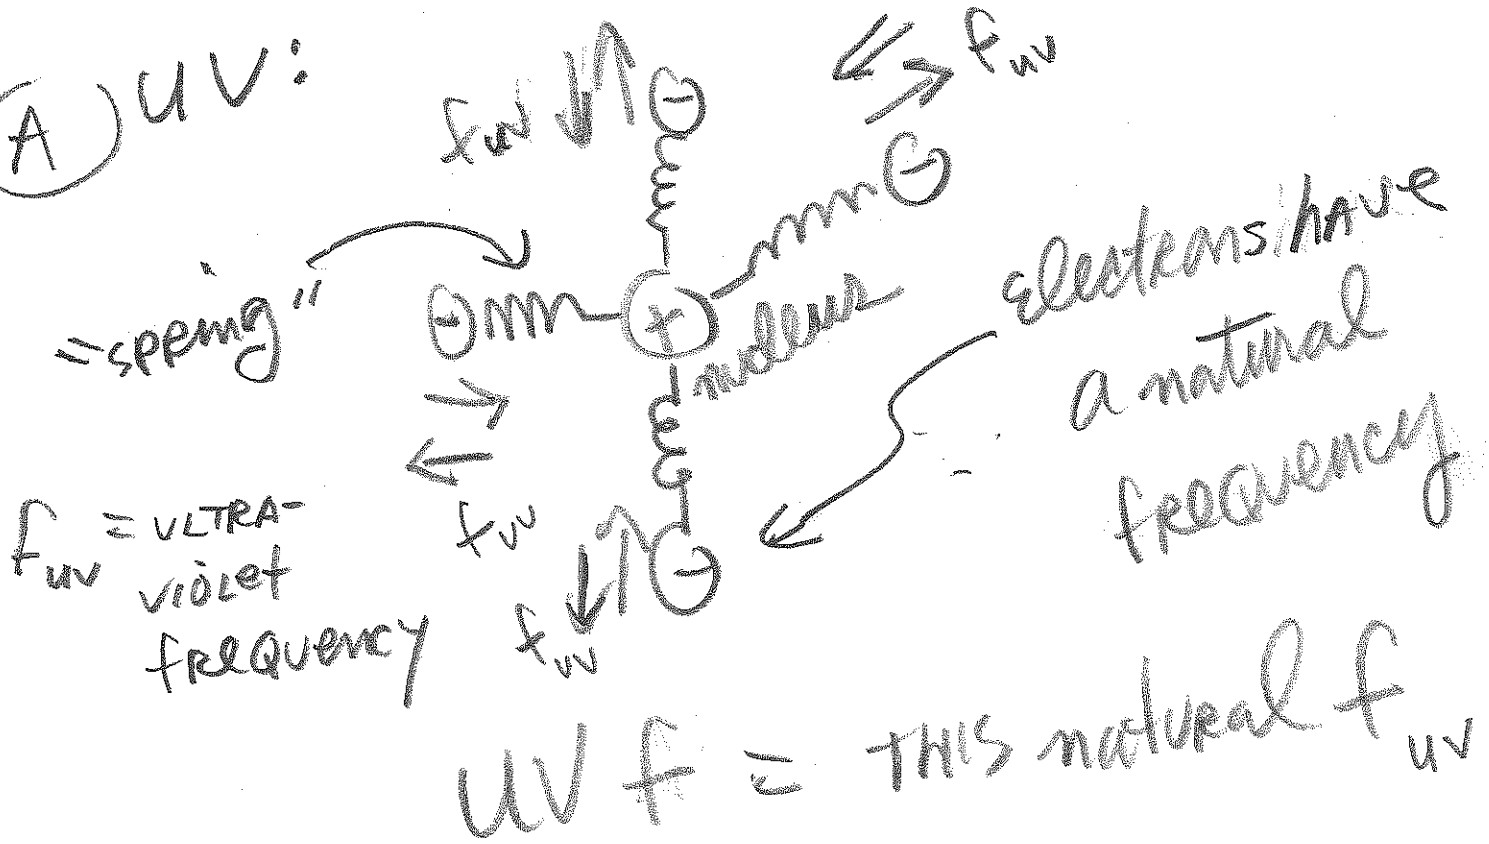 A UV:
fuv
fuv
"spring"
nucleus
electrons have
a natural
frequency
fuv
fuv
fuv = ULTRA-
violet
frequency
UV f = THIS natural fuv